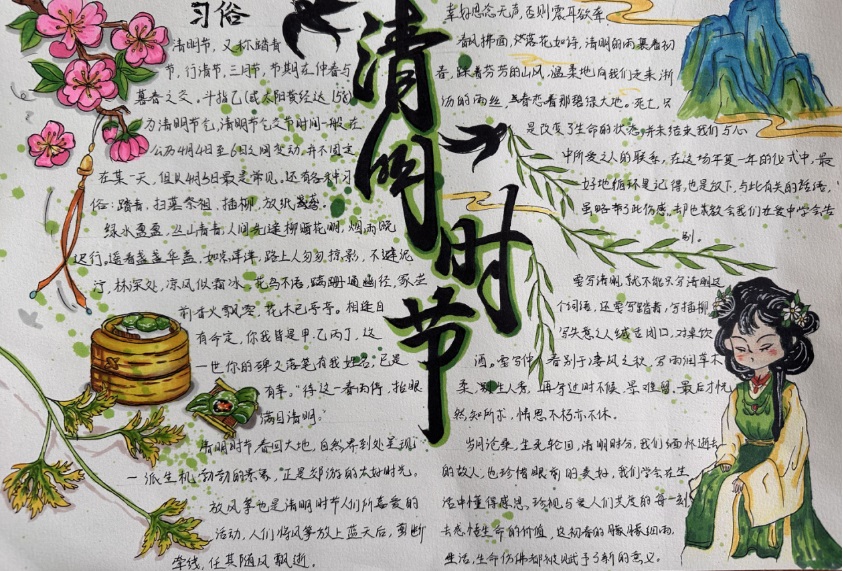 习俗
清明节，又称踏青
节、行清节、三月节，节期在仲春与
暮春之交。斗指乙(或太阳黄经达15°)
为清明节气，清明节气交节时间一般在
公历4月4日至6日之间变动，并不固定
在某一天，但以4月5日最是常见，还有各种习
俗：踏青，扫墓祭祖，插柳，放纸鸢等。
绿水盈盈，丛山清音，人间先逢柳暗花明，烟雨晚
林深处，凉风似霜冰，花鸟不语，蹒跚通幽径，冢茔
前香火飘零，花木已亭亭。相逢自
有命定，你我皆是甲乙丙丁，这
一世你的碑文落笔有我姓名，已是
有幸。"待这一春雨停，抬眼
满目清明。"
清明时节春回大地，自然界到处呈现
一派生机勃勃的景象，正是郊游的大好时光。
放风筝也是清明时节人们所喜爱的
活动，人们将风筝放上蓝天后，剪断
牵线，任其随风飘逝。
清明时节
幸好思念无声，否则震耳欲聋。
春风拂面，落花如诗，清明的雨裹着初
春，踩着芬芳的山风，温柔地向我们走来，淅
沥的雨丝，恋着那碧绿大地。死亡，只
是改变了生命的状态，并未结束我们与心
中所爱之人的联系，在这场年复一年的仪式中，最
好地循环是记得，也是放下，与此有关的话语，
虽略带了些伤感，却也某教会我们在爱中学会告
别。
要写清明，就不能只写清明这
个词语，还要写踏青，写插柳，
写失意之人缄言闭口，对桌饮
酒。要写仲春别于凄风之秋，写雨润草木
柔，别生人老，再年过时不候，景难留，最后才恍
然知所求，情思不朽亦不休。
岁月沧桑，生死轮回，清明时分，我们缅怀逝去
的故人，也珍惜眼前的美好，我们学会在生
活中懂得感恩，珍视与爱人们共度的每一刻
去感悟生命的价值，这初春的朦朦细雨，
生活，生命仿佛都被赋予了新的意义。